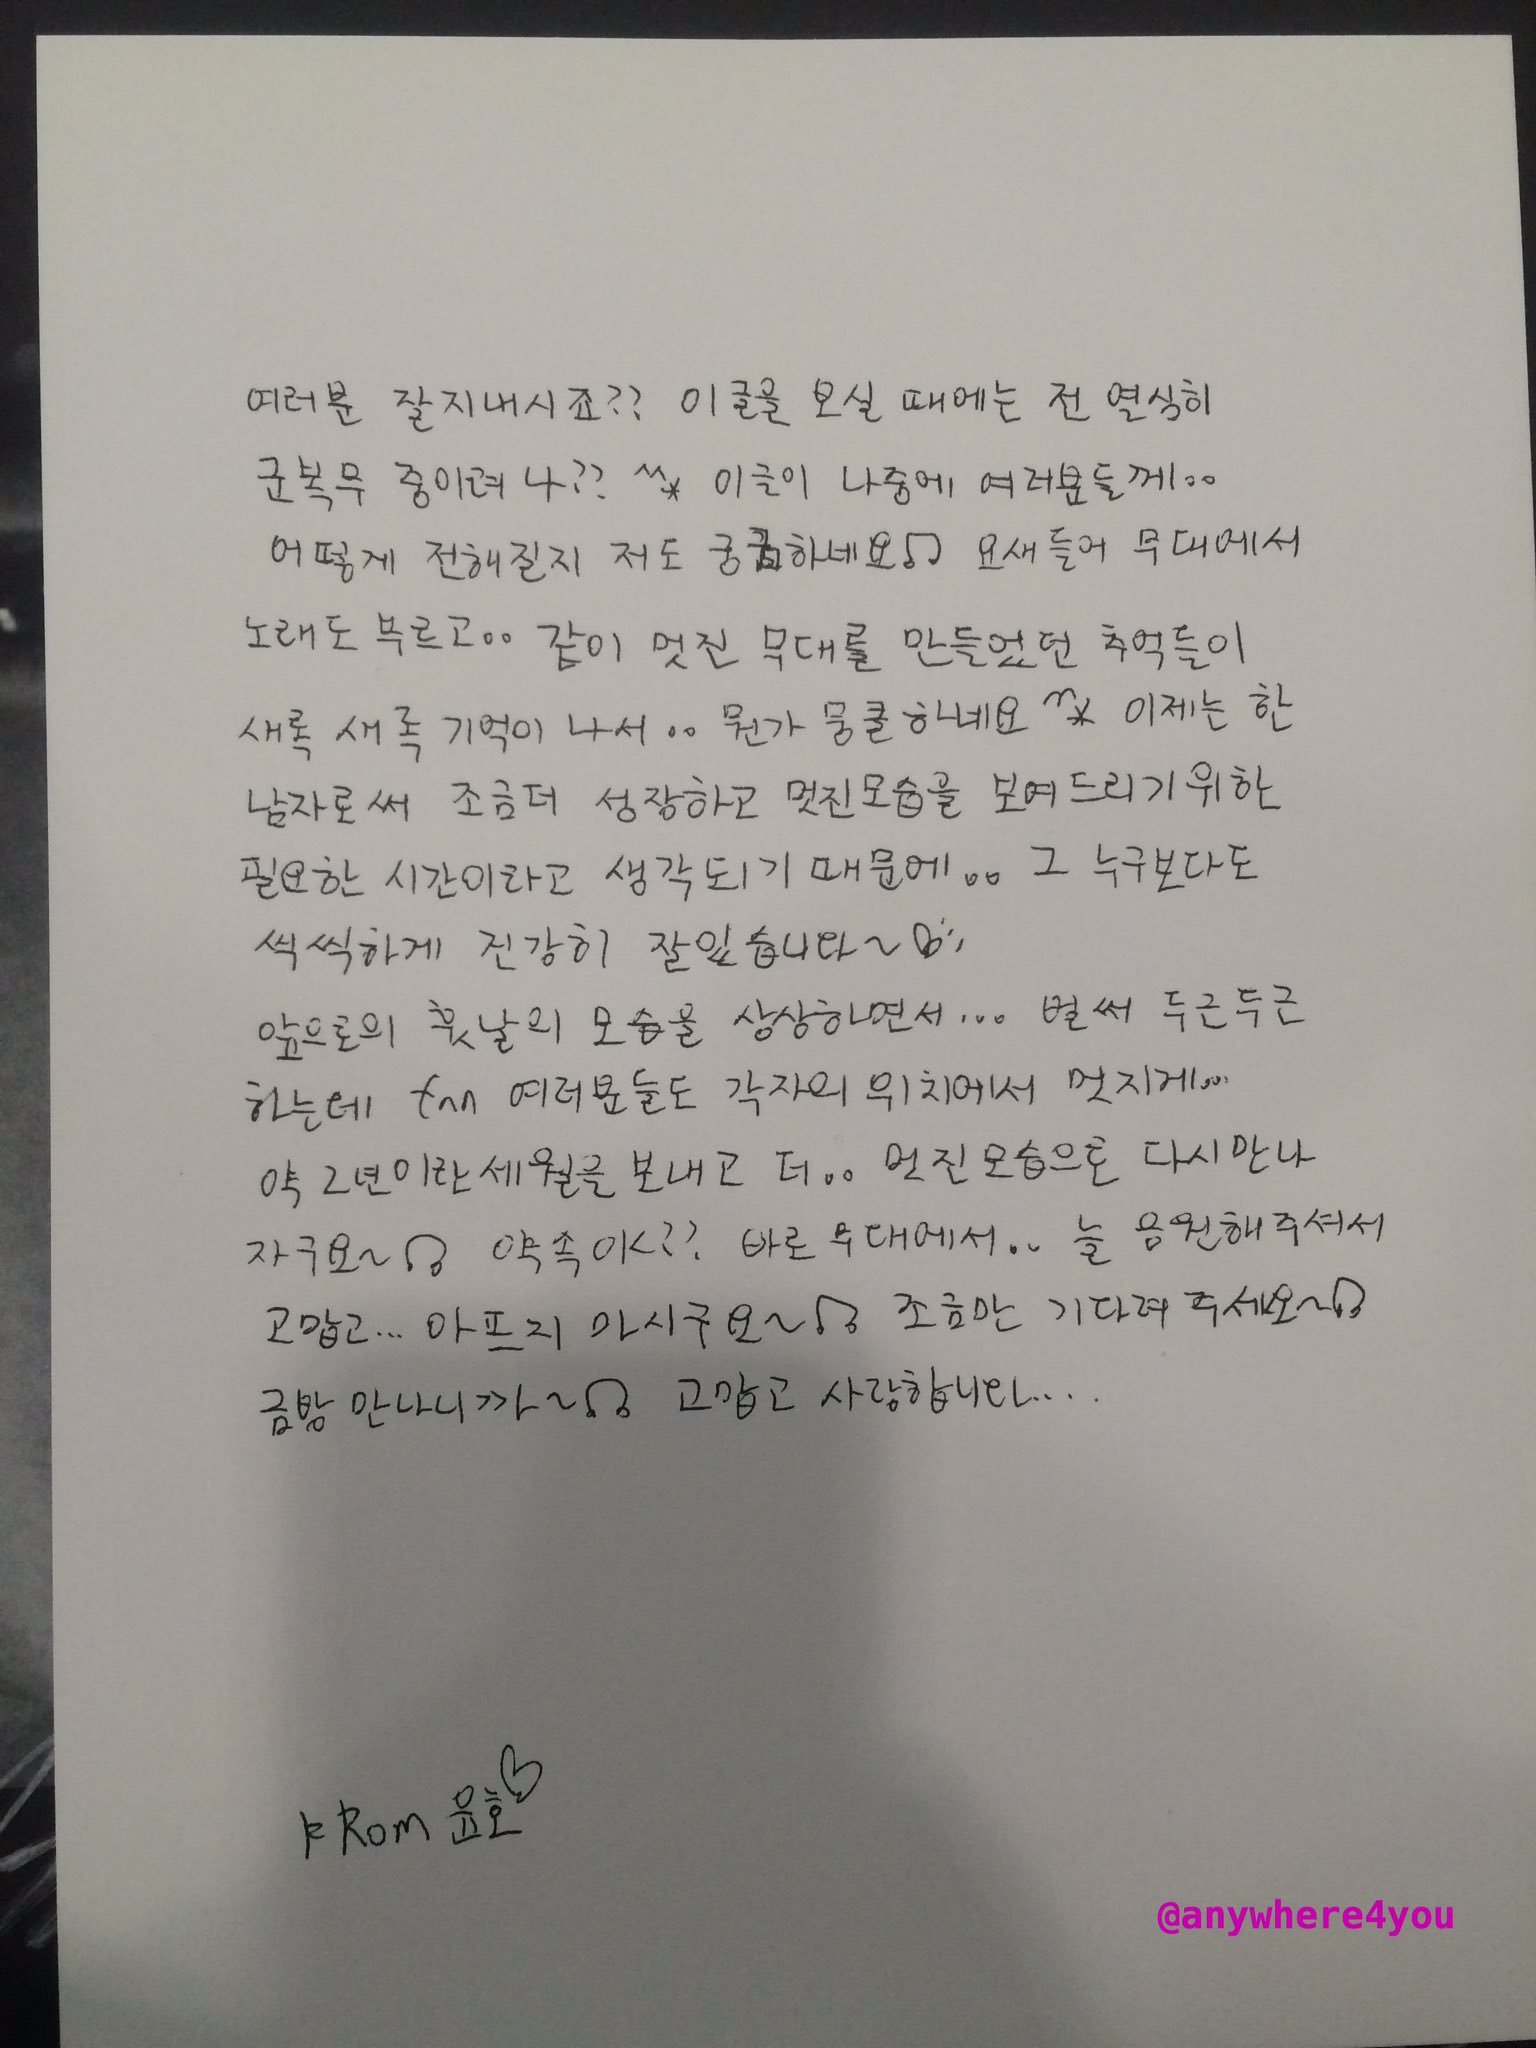 여러분 잘지내시죠?? 이글을 보실 때에는 전 열심히
군복무 중이려나?? ^^* 이글이 나중에 여러분들께..
어떻게 전해질지 저도 궁금하네요♫ 요새들어 무대에서
노래도 부르고.. 같이 멋진 무대를 만들었던 추억들이
새록 새록 기억이 나서.. 뭔가 뭉클하네요 ^^* 이제는 한
남자로써 조금더 성장하고 멋진모습을 보여드리기위한
필요한 시간이라고 생각되기 때문에.. 그 누구보다도
씩씩하게 건강히 잘있습니다~
앞으로의 훗날의 모습을 상상하면서... 벌써 두근두근
하는데 여러분들도 각자의 위치에서 멋지게...
약 2년이란세월을 보내고 더.. 멋진모습으로 다시만나
자구요~♫ 약속이<?? 바로 무대에서.. 늘 응원해주셔서
고맙고... 아프지 마시구요~♫ 조금만 기다려 주세요~♫
금방 만나니까~♫ 고맙고 사랑합니다....
FROM 윤호♡
@anywhere4you